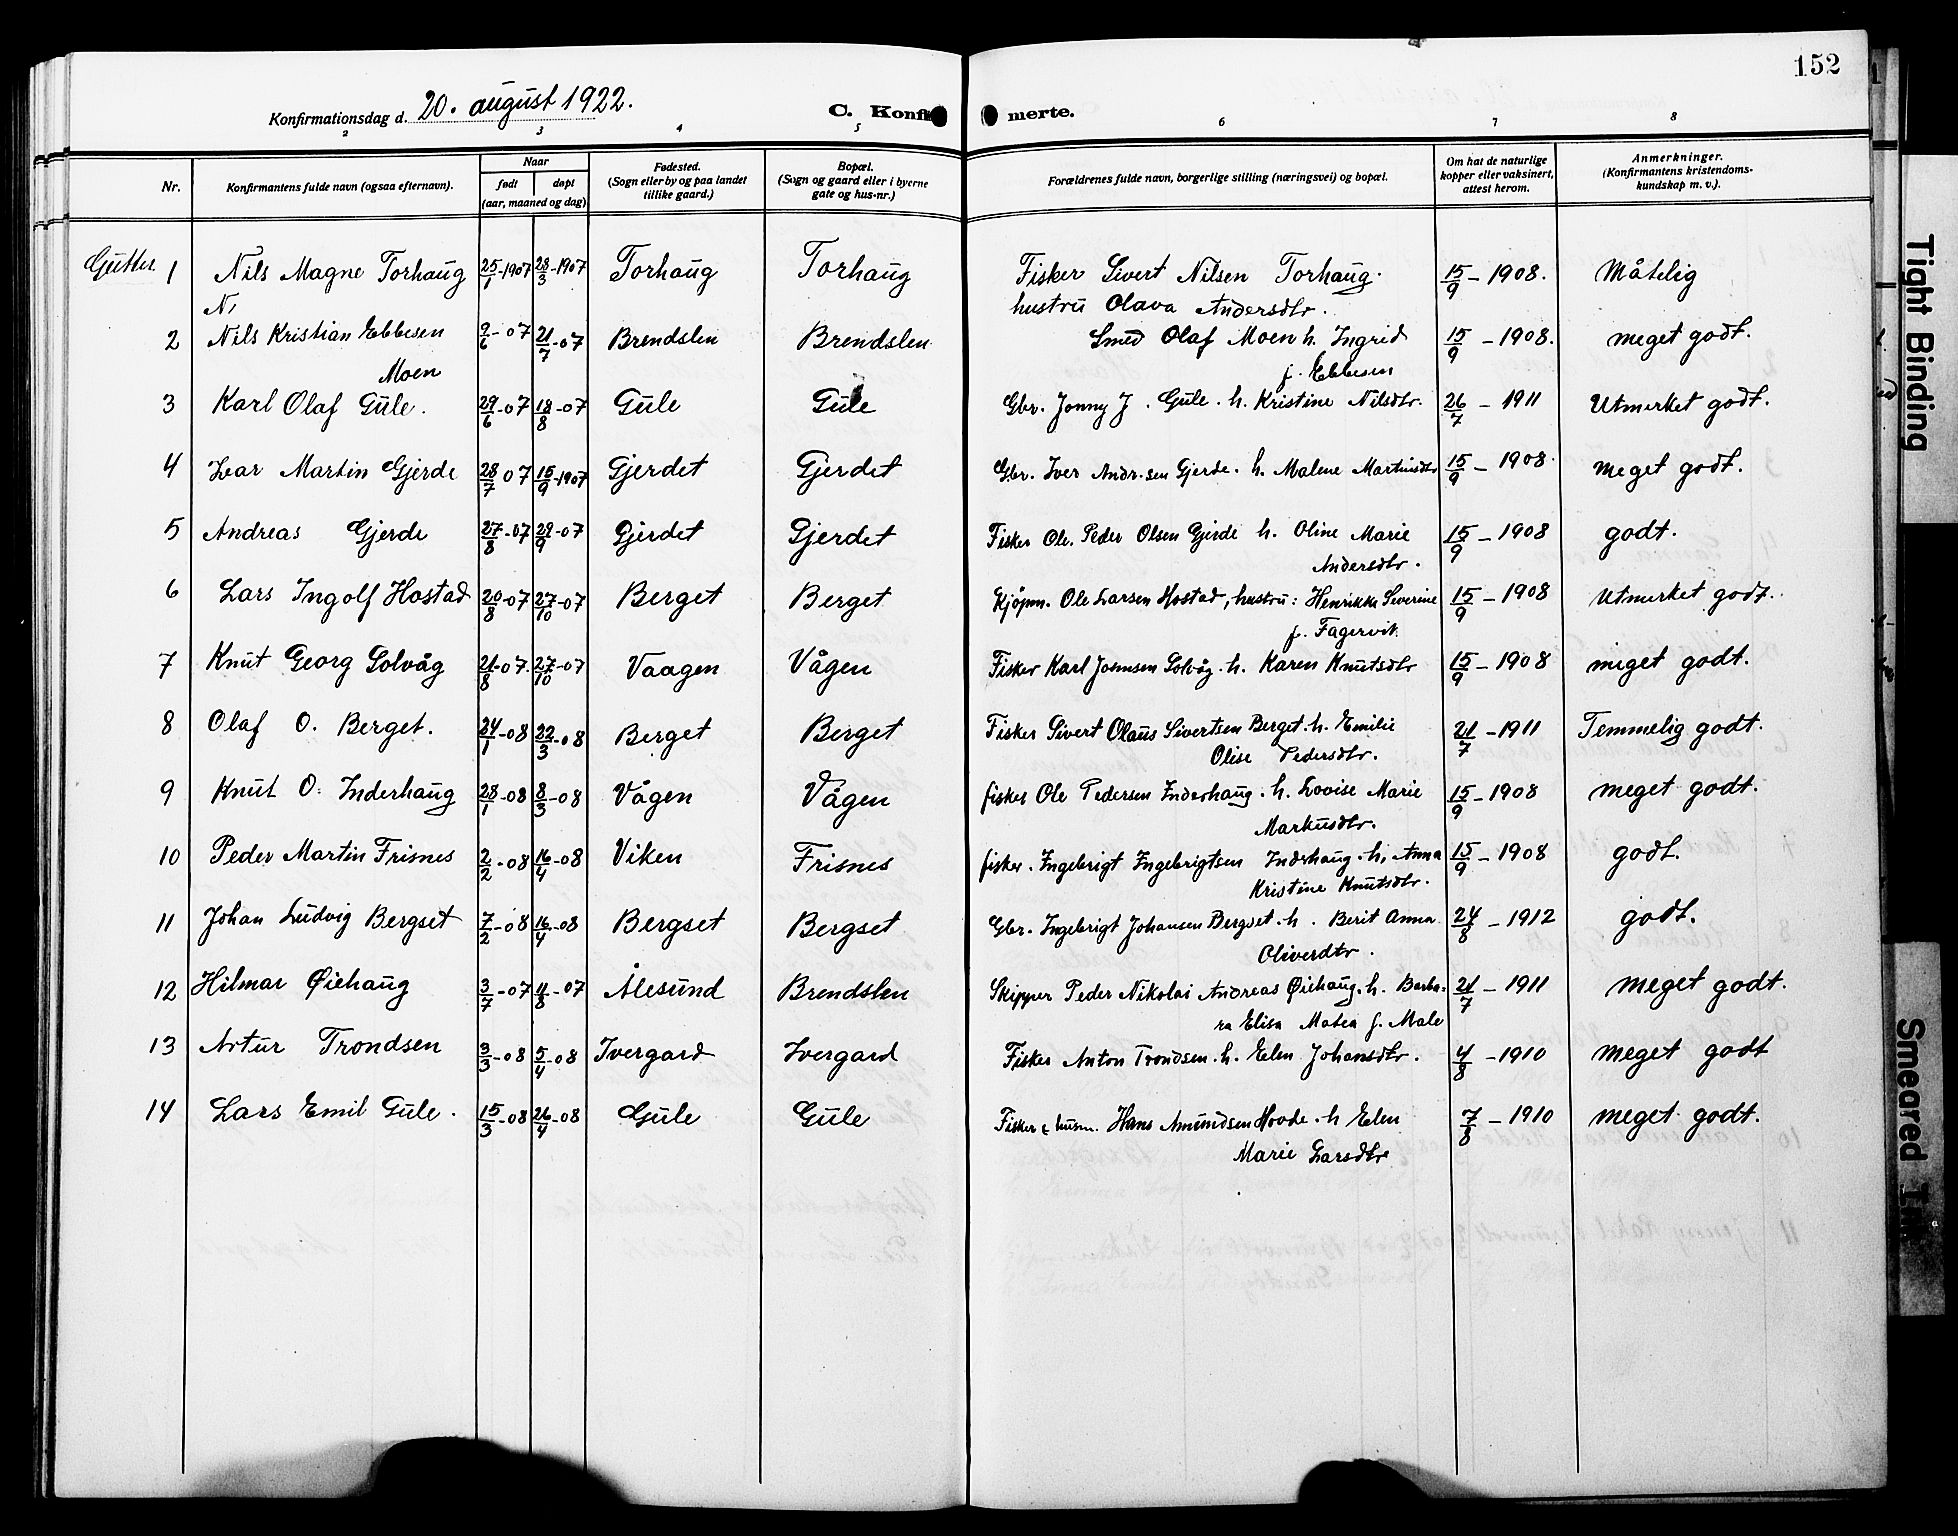 152
Konfirmationsdag d. 20. august 1922.
C. Konfir merte.
2 3 4 5 6 7 8
Nr.
Konfirmantens fulde navn (ogsaa efternavn).
Naar
født døpt
(aar, maaned og dag)
Fødested.
(Sogn eller by og paa landet
tillike gaard.)
Bopæl.
(Sogn og gaard eller i byerne
gate og hus-nr.)
Forældrenes fulde navn, borgerlige stilling (næringsvei) og bopæl.
Om hat de naturlige
kopper eller vaksinert,
attest herom.
Anmerkninger.
(Konfirmantens kristendoms-
kundskap m. v.).
Gutter. 1 Nils Magne Torhaug 25/1-1907 28/3-1907 Torhaug Torhaug Fisker Sivert Nilsen Torhaug. 15/9-1908. Måtelig
N, hustru Olava Andersdtr.
2 Nils Kristian Ebbesen 9/6-07 21/7-07 Brendslen Brendslen Smed Olaf Moen h. Ingrid 15/9-1908. meget godt.
Moen f. Ebbesen
3 Karl Olaf Gule. 29/6-07 18/8-07 Gule Gule Gbr. Jonny J. Gule. h. Kristine Nilsdtr. 26/7-1911 Utmerket godt.
4 Ivar Martin Gjerde 28/7 07 15/9-1907 Gjerdet Gjerdet Gbr. Iver Andr.sen Gjerde. h. Malene Martinsdtr 15/9-1908. meget godt.
5 Andreas Gjerde 27/8-07 29/9-07 Gjerdet Gjerdet Fisker Ole. Peder Olsen Gjerde h. Oline Marie 15/9-1908 godt.
Andersdtr.
6 Lars Ingolf Hostad 20/8-07 27/10-07 Berget Berget Kjöpm. Ole Larsen Hostad, hustru: Henrikka Severine 15/9-1908 Utmerket godt.
f. Fagervik.
7 Knut Georg Solvåg 21/8-07. 27/10-07 Vaagen Vågen Fisker Karl Joensen Solvåg. h. Karen Knutsdtr 15/9-1908 meget godt.
8 Olaf O. Berget. 24/1-08 22/3-08 Berget Berget Fisker Sivert Olaus Sivertsen Berget. h. Emilie 21/7-1911 Temmelig godt.
Olise Pedersdtr.
9 Knut O. Inderhaug 28/1-08 8/3-08 Vågen Vågen fisker Ole Pedersen Inderhaug. h. Lovise Marie 15/9-1908 meget godt.
Markusdtr.
10 Peder Martin Frisnes 2/2-08 16/4-08 Viken Frisnes fisker. Ingebrigt Ingebrigtsen Inderhaug. h, Anna 15/9-1908 godt.
Kristine Knutsdtr.
11 Johan Ludvig Bergset 7/2-08 16/4-08 Bergset Bergset Gbr. Ingebrigt Johansen Bergset. h. Berit Anna 24/8-1912 godt.
Oliverdtr.
12 Hilmar Øiehaug 3/7-07 11/8-07 Ålesund Brendslen Skipper Peder Nikolai Andreas Øiehaug. h. Barba- 21/7-1911 meget godt.
ra Elisa Matea f. Male
13 Artur Trondsen 3/3-08 5/4-08 Ivergard Ivergard Fisker Anton Trondsen. h. Elen Johansdtr. 4/8-1910 meget godt
14 Lars Emil Gule. 15/3-08 26/4-08 Gule Gule Fisker & husm. Hans Amundsen Hovde. h Elen 7/8-1910 meget godt.
Marie Larsdtr
Tight Binding
Smeared Ink